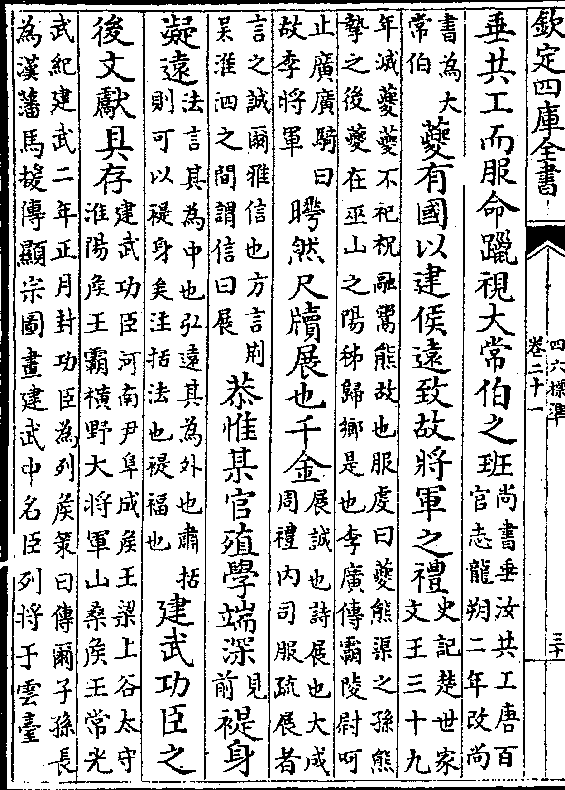 欽定四庫全書
四六標準
卷二十一
三十
垂共工而服命躐視大常伯之班
尚書垂汝共工唐百
官志龍朔二年改尚
書為大
常伯
夔有國以建侯遠致故將軍之禮
史記楚世家
文王三十九
年滅夔夔不祀祝融鬻熊故也服虔曰夔熊渠之孫熊
摯之後夔在巫山之陽秭歸鄉是也李廣傳霸陵尉呵
止廣廣騎曰
故李將軍
聘然尺牘展也千金
展誠也詩展也大成
周禮内司服疏展者
言之誠爾雅信也方言荆
呉淮泗之間謂信曰展
恭惟某官殖學端深
見
前
禔身
凝遠
法言其為中也弘遠其為外也肅括
則可以禔身矣注括法也禔福也
建武功臣之
後文獻具存
建武功臣河南尹阜成侯王梁上谷太守
淮陽侯王霸橫野大將軍山桑侯王常光
武紀建武二年正月封功臣為列侯策曰傳爾子孫長
為漢藩馬援傳顯宗圖畫建武中名臣列將于雲臺